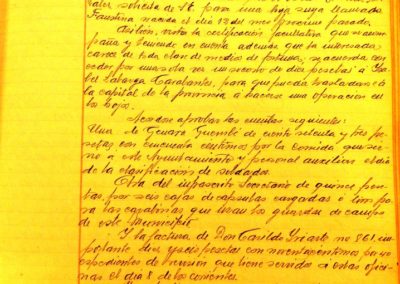 Valer solicita de Vd. para una hija suya llamada
Faustina nacida el dia 13 del mes proximo pasado.
Asi bien, vista la certificación facultativa que se acompaña
y teniendo en cuenta ademas que la interesada,
carece de toda clase de medios de fortuna, se acuerda conceder
por una sola vez un socorro de diez pesetas á
Labarga Carabantes, para que pueda trasladarse á
la capital de la provincia á hacerse una operacion en
los ojos.
Acordose aprobar las cuentas siguientes:
Una de Genaro de ciento setenta y tres pesetas
con cincuenta centimos por la comida que sirvió
á este Ayuntamiento y personal auxiliar el dia
de la clasificacion de soldados.
Otra del infrascrito Secretario de quince pesetas,
por seis cajas de capsulas cargadas
para las carabinas que usan los guardas de campo
de este municipio.
Y la factura de Don Casildo Iriarte nº 861, importante
diez y ocho pesetas con noventa centimos por
expedientes de revision que tiene servidos á estas oficinas
el dia 8 de los corrientes.